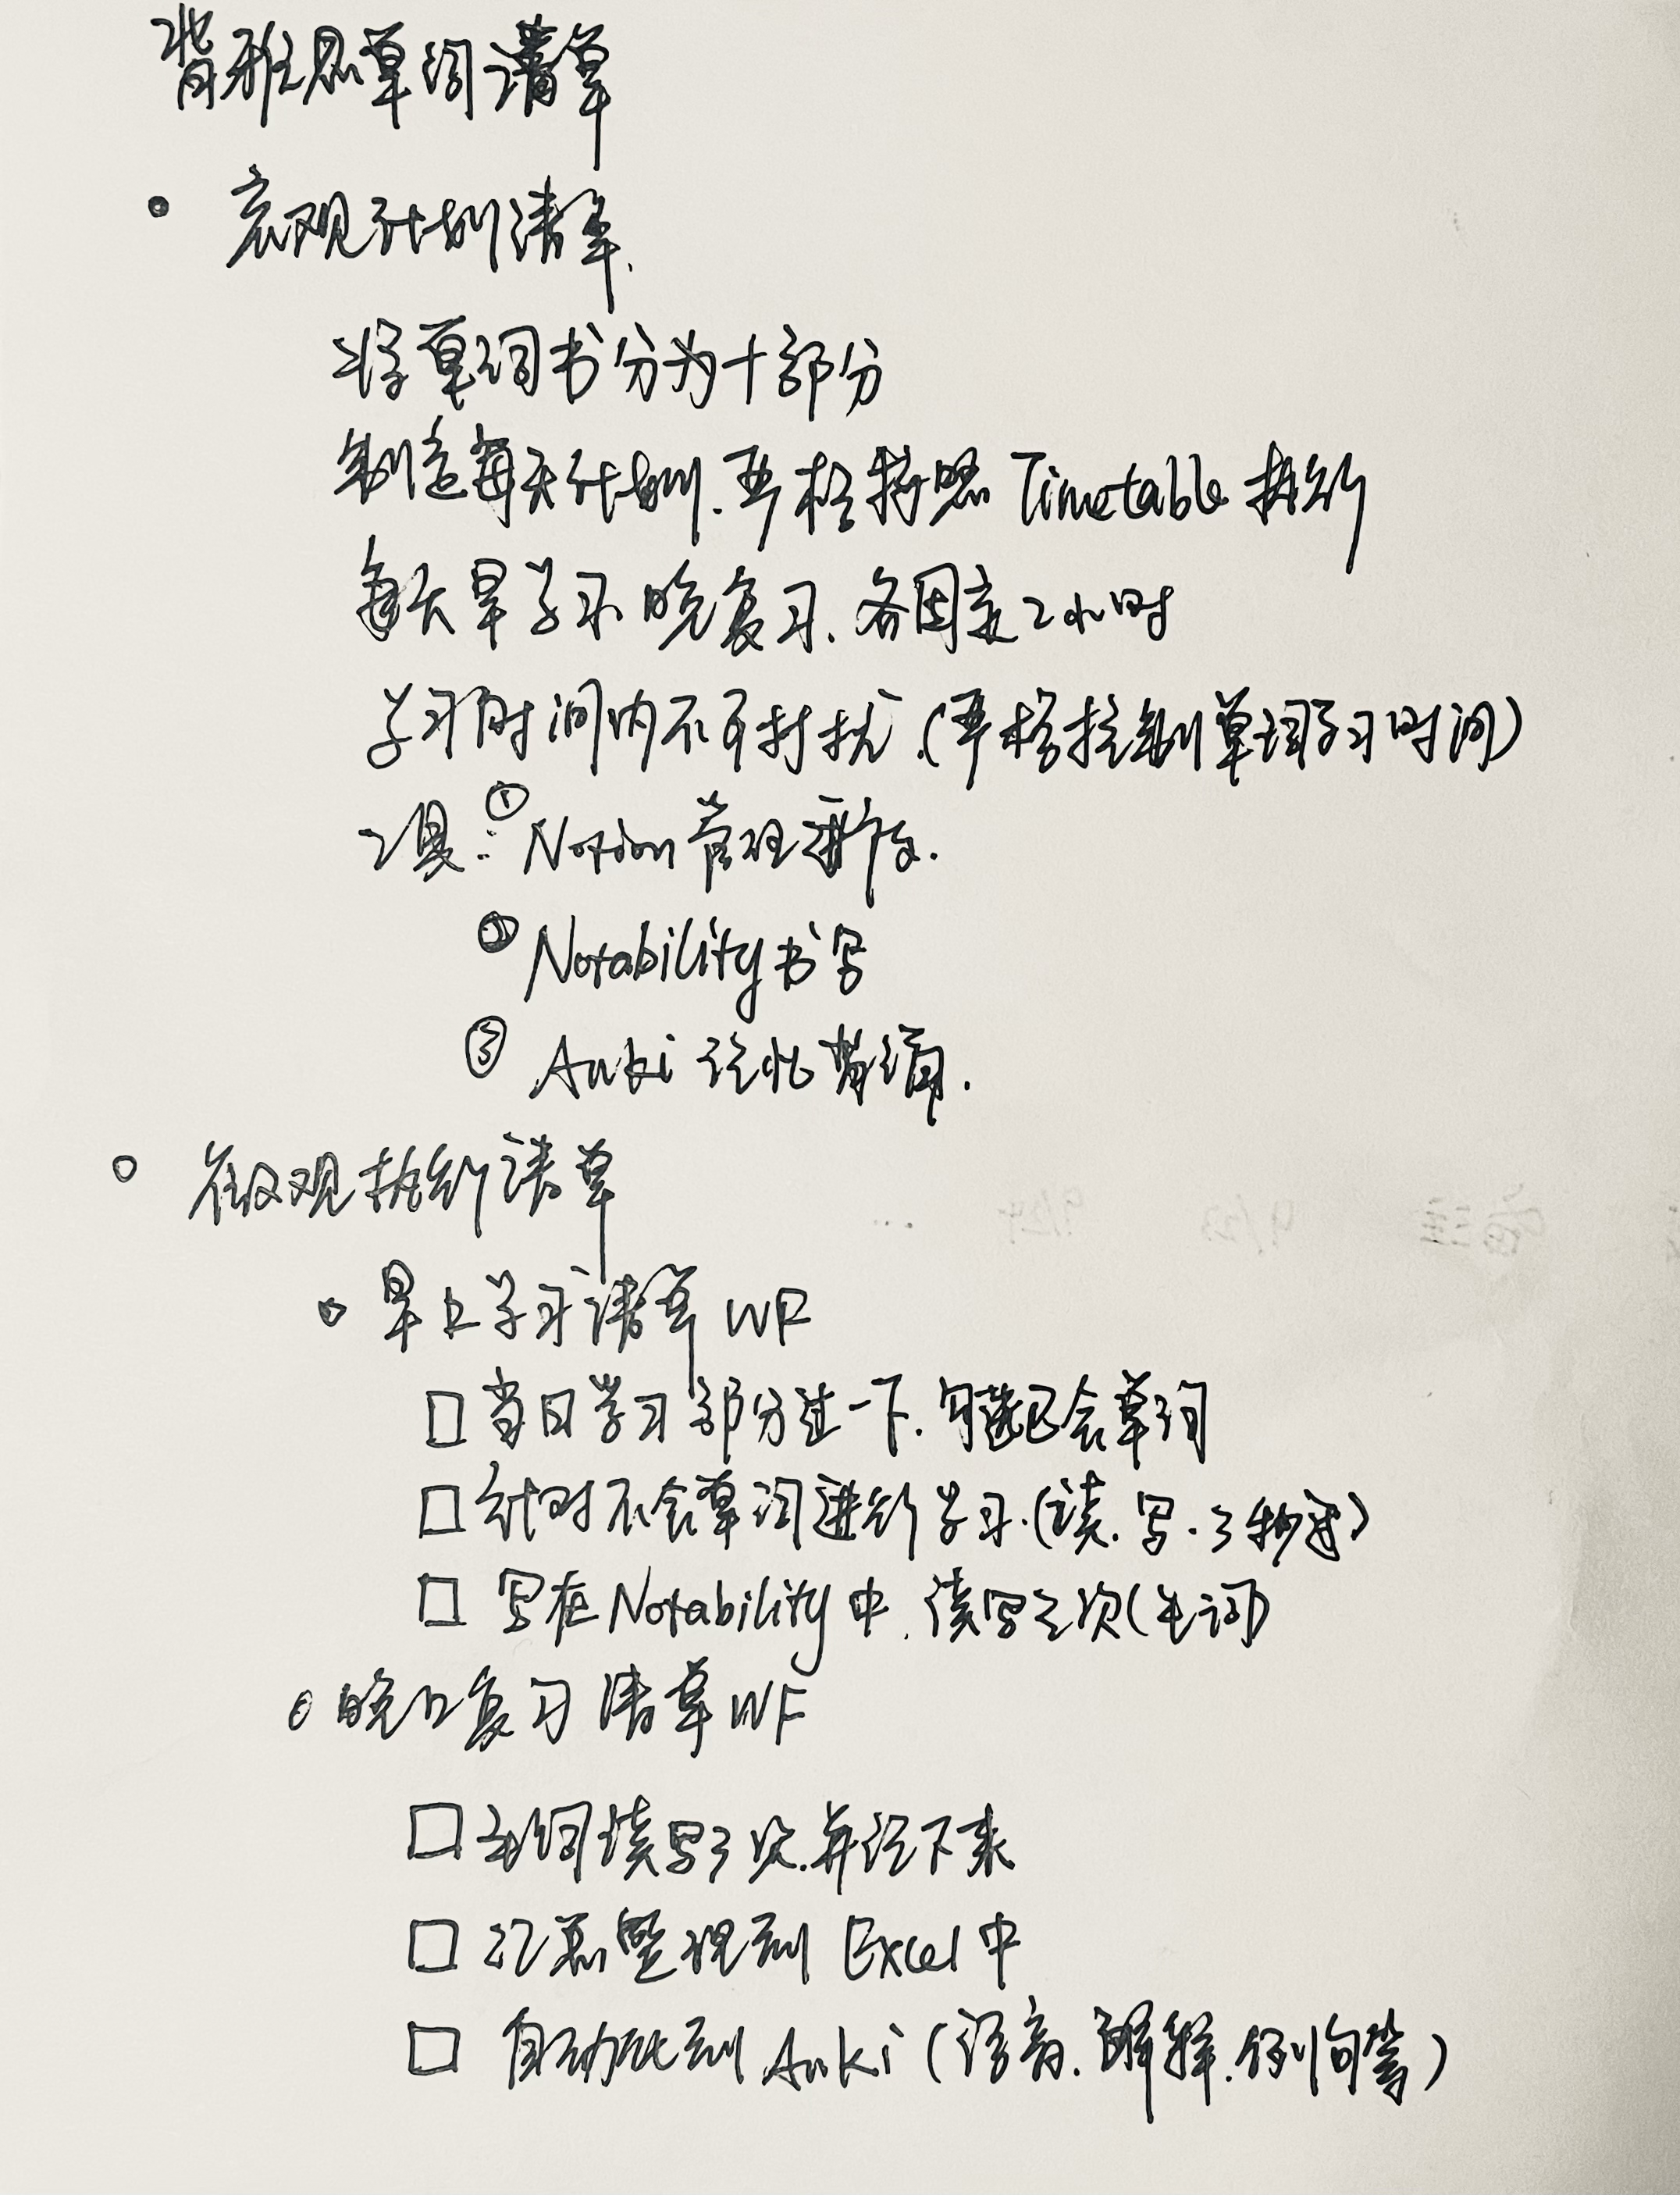 背雅思单词清单
宏观计划清单.
将单词书分为十部分
制定每天计划.严格按照 Timetable 执行
每天早学习晚复习.各固定2小时
学习时间内不可打扰.(严格控制单词学习时间)
工具:①Notion管理进度.
②Notability书写
③Anki 记忆背诵.
微观执行清单
早上学习清单 WF
□当日学习部分过一下.勾选已会单词
□针对不会单词进行学习.(读.写.3秒过)
□写在Notability中.读写三次(生词)
晚上复习清单WF
□生词读写3次.并记下来
□汇总整理到 Excel中
□自动化到 Anki (语音.解释.例句等)